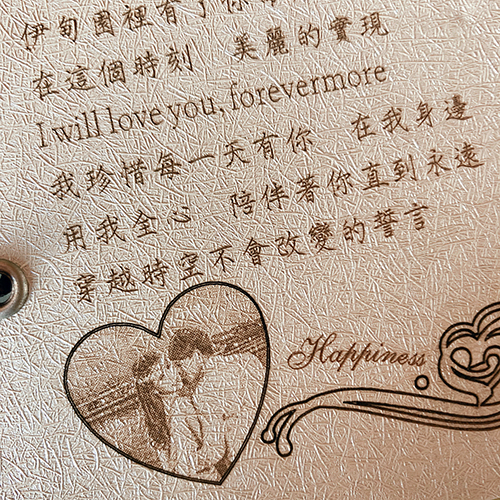 伊甸園裡有了你
在這個時刻 美麗的實現
I will love you, forevermore
我珍惜每一天有你 在我身邊
用我全心 陪伴著你直到永遠
穿越時空不會改變的誓言
Happiness